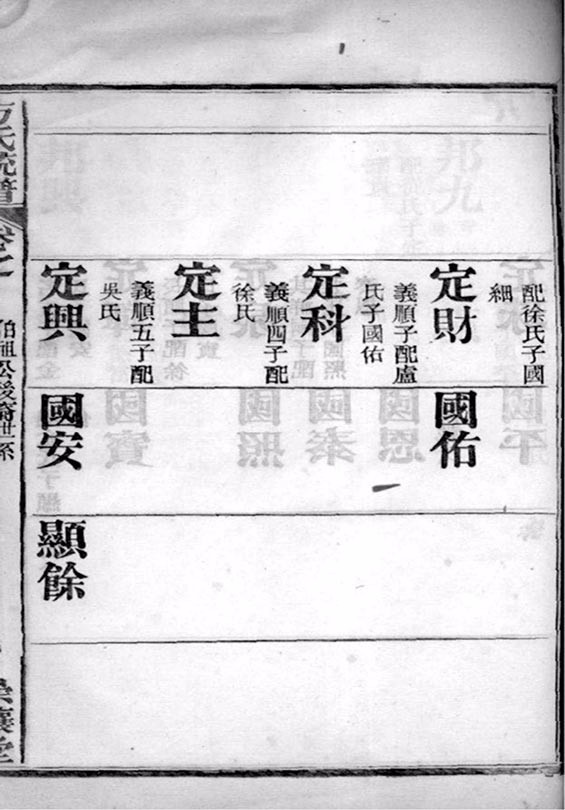 配徐氏子國
細
定財
義順子配盧
氏子國佑
定科
義順四子配
徐氏
定主
義順五子配
吳氏
定興
國佑
國安
顯餘
方氏統譜
卷之
裔世系
堂